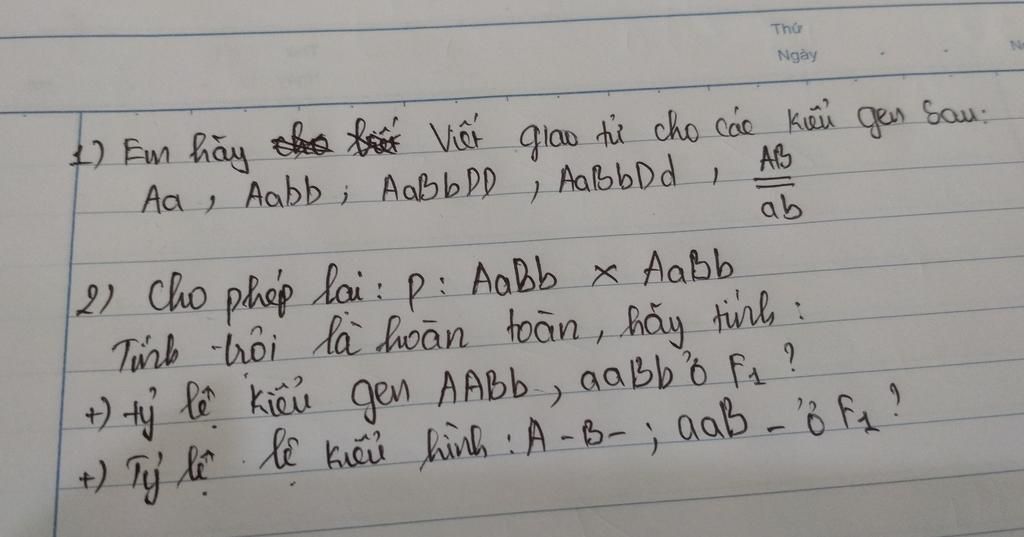 Thứ
Ngày
1) Em hãy viết giao tử cho các kiểu gen sau:
Aa, Aabb; AaBbDD, AaBbDd, AB/ab
2) Cho phép lai: P: AaBb × AaBb
Tính trội là hoàn toàn, hãy tính:
+) tỷ lệ kiểu gen AABb, aaBb ở F1?
+) Tỷ lệ lệ kiểu hình: A-B-; aaB- ở F1?